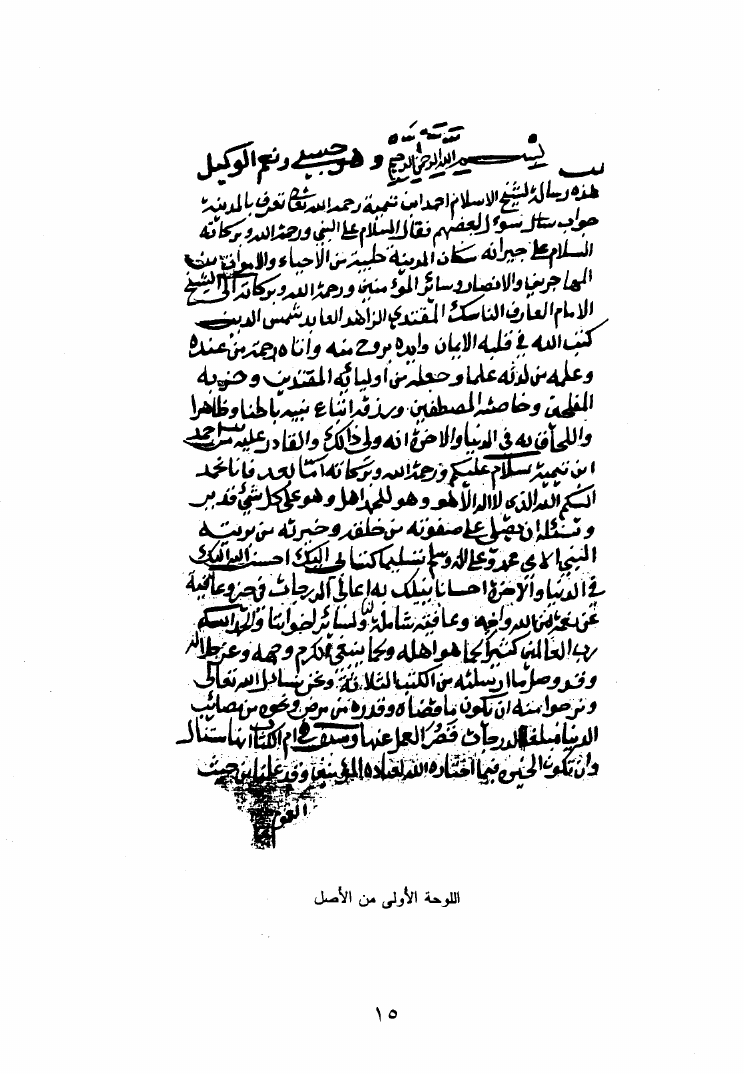 بسم الله الرحمن الرحيم وهو حسبي ونعم الوكيل
هذه رسالة لشيخ الاسلام احمد ابن تيمية رحمه الله تعالى تعرف بالمدينة
جواب سائل لبعضهم فقال السلام على النبي ورحمة الله وبركاته
السلام على جيرانه سكان المدينة طيبة من الاحياء والاموات من
المهاجرين والانصار وسائر المؤمنين ورحمة الله وبركاته الى الشيخ
الامام العارف الناسك المقتدي الزاهد العابد شمس الدين
كتب الله في قلبه الايمان وايده بروح منه واتاه رحمة من عنده
وعلمه من لدنه علما وجعله من اوليائه المتقين وحزبه
المفلحين وخاصته المصطفين ورزقه اتباع نبيه باطنا وظاهرا
واللحاق به في الدنيا والاخرة انه ولي ذالك والقادر عليه من احمد
ابن تيمية سلام عليكم ورحمة الله وبركاته اما بعد فانا نحمد
اليكم الله الذي لا اله الا هو وهو للحمد اهل وهو على كل شيء قدير
ونسئله ان يصلي على صفوته من خلقه وخيرته من بريته
النبي الامي محمد وعلى اله وسلم تسليما كتابي اليك احسن الله اليك
في الدنيا والاخرة احسانا ينيلك به اعالي الدرجات في خير وعافية
عن نعمة من الله ورحمة وعافية شاملة لنا ولسائر اخواننا والحمد لله
رب العالمين كثيرا كما هو اهله وكما ينبغي لكرم وجهه وعز جلاله
وقد وصل ما ارسلته من الكتب الثلاثة ونحن نسائل الله تعالى
ونرجوا منه ان يكون ما قضاه وقدره من مرض ونحوه من مصائب
الدنيا مبلغا لدرجات قصر العمل عنها وسبق في ام الكتاب انها ستنال
وان تكون الخيرة فيما اختاره الله لعباده المؤمنين وقد علمنا من حيث
العموم
اللوحة الأولى من الأصل
١٥